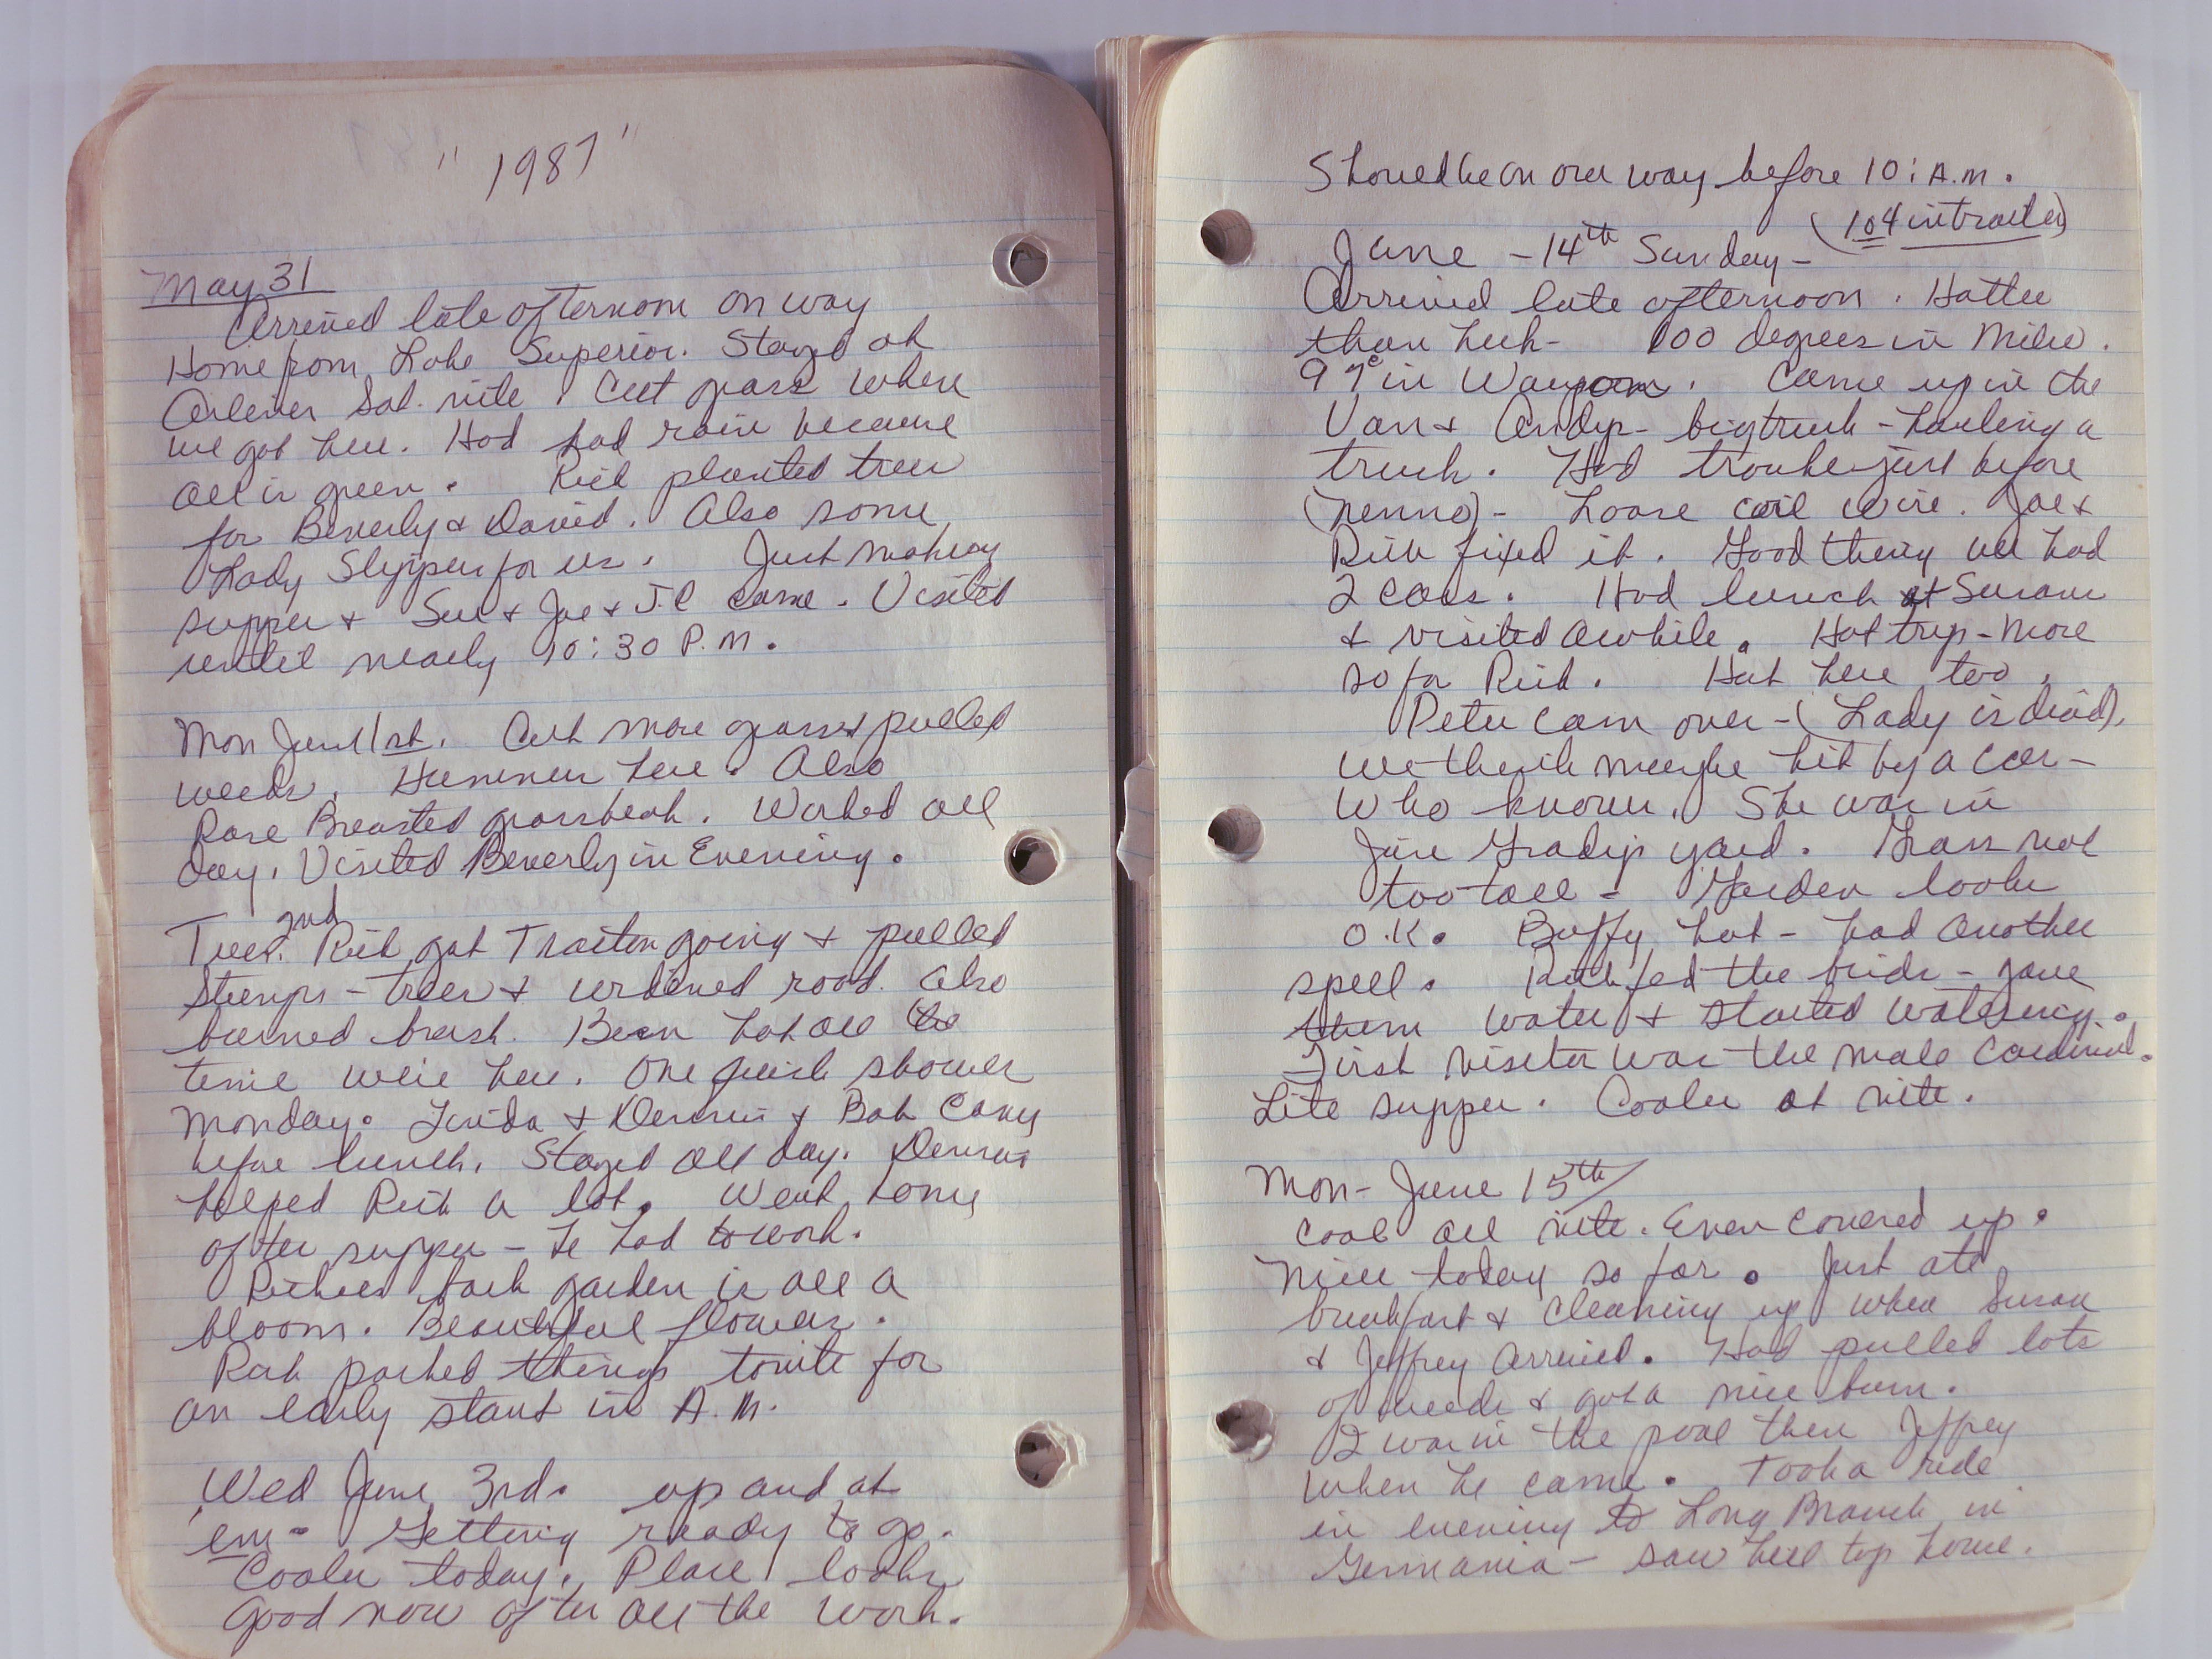 "1987"
May 31
Arrived late afternoon on way
Home from Lake Superior. Stayed at
Arlenes Sat. nite. Cut grass when
we got here. Had had rain because
all is green. Rich planted trees
for Beverly & David. Also some
Lady Slippers for us. Just making
supper & Sue & Joe & J.C came. Visited
until nearly 10:30 P.M.
Mon June 1st. Cut more grass & pulled
weeds. Hummers here. Also
Rose Breasted grossbeak. Worked all
day. Visited Beverly in Evening.
Tues. 2nd Rich got Tractor going & pulled
Stumps - trees & widened road. Also
burned brush. Been hot all the
time we're here. One quick shower
Monday. Linda & Dennis & Bob Came
before lunch. Stayed all day. Dennis
helped Rich a lot. Went home
after supper - he had to work.
Richies rock garden is all a
bloom. Beautiful flowers.
Rich packed things tonite for
an early start in A.M.
Wed June 3rd. up and at
'em - Getting ready to go.
Cooler today. Place looks
good now after all the work.
Should be on our way before 10: A.M.
June - 14th Sunday - (104 in trailer)
Arrived late afternoon. Hotter
than heck - 100 degrees in Milw.
97° in Waupom. Came up in the
Van & Andys - big truck - hauling a
truck. Had trouble just before
(Nenno) - Loose coil wire. Joe &
Rich fixed it. Good thing we had
2 cars. Had lunch at Susans
& visited awhile. Hot trip - More
so for Rich. Hot here too.
Peter cam over - (Lady is dead).
We think maybe hit by a car -
Who knows. She was in
Jim Gradys yard. Grass not
too tall - Garden looks
O.K. Buffy hot - had another
spell. Rich fed the birds - gave
them water & started watering.
First visitor was the male Cardinal.
Lite supper. Cooler at nite.
Mon - June 15th
Cool all nite. Even covered up.
Nice today so far. Just ate
breakfast & cleaning up when Susan
& Jeffrey arrived. Had pulled lots
of weeds & got a nice burn.
I was in the pool then Jeffrey
when he came. Took a ride
in evening to Long Branch in
Germania - saw hill top home.